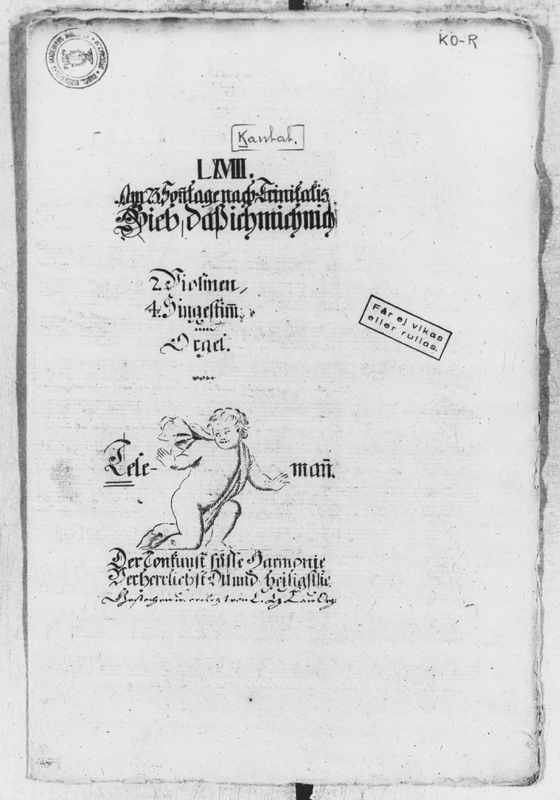 KO-R
Kantat.
LXVIII.
Am 23 Soñtage nach Trinitatis.
Gieb, daß ich mich nich
2. Violinen,
4. Singestim̃.
Orgel.
von
Tele- mañ.
Der Tonkunst süsse Harmonie
Verherrlichst Du und heiligst sie.
Får ej vikas
eller rullas.